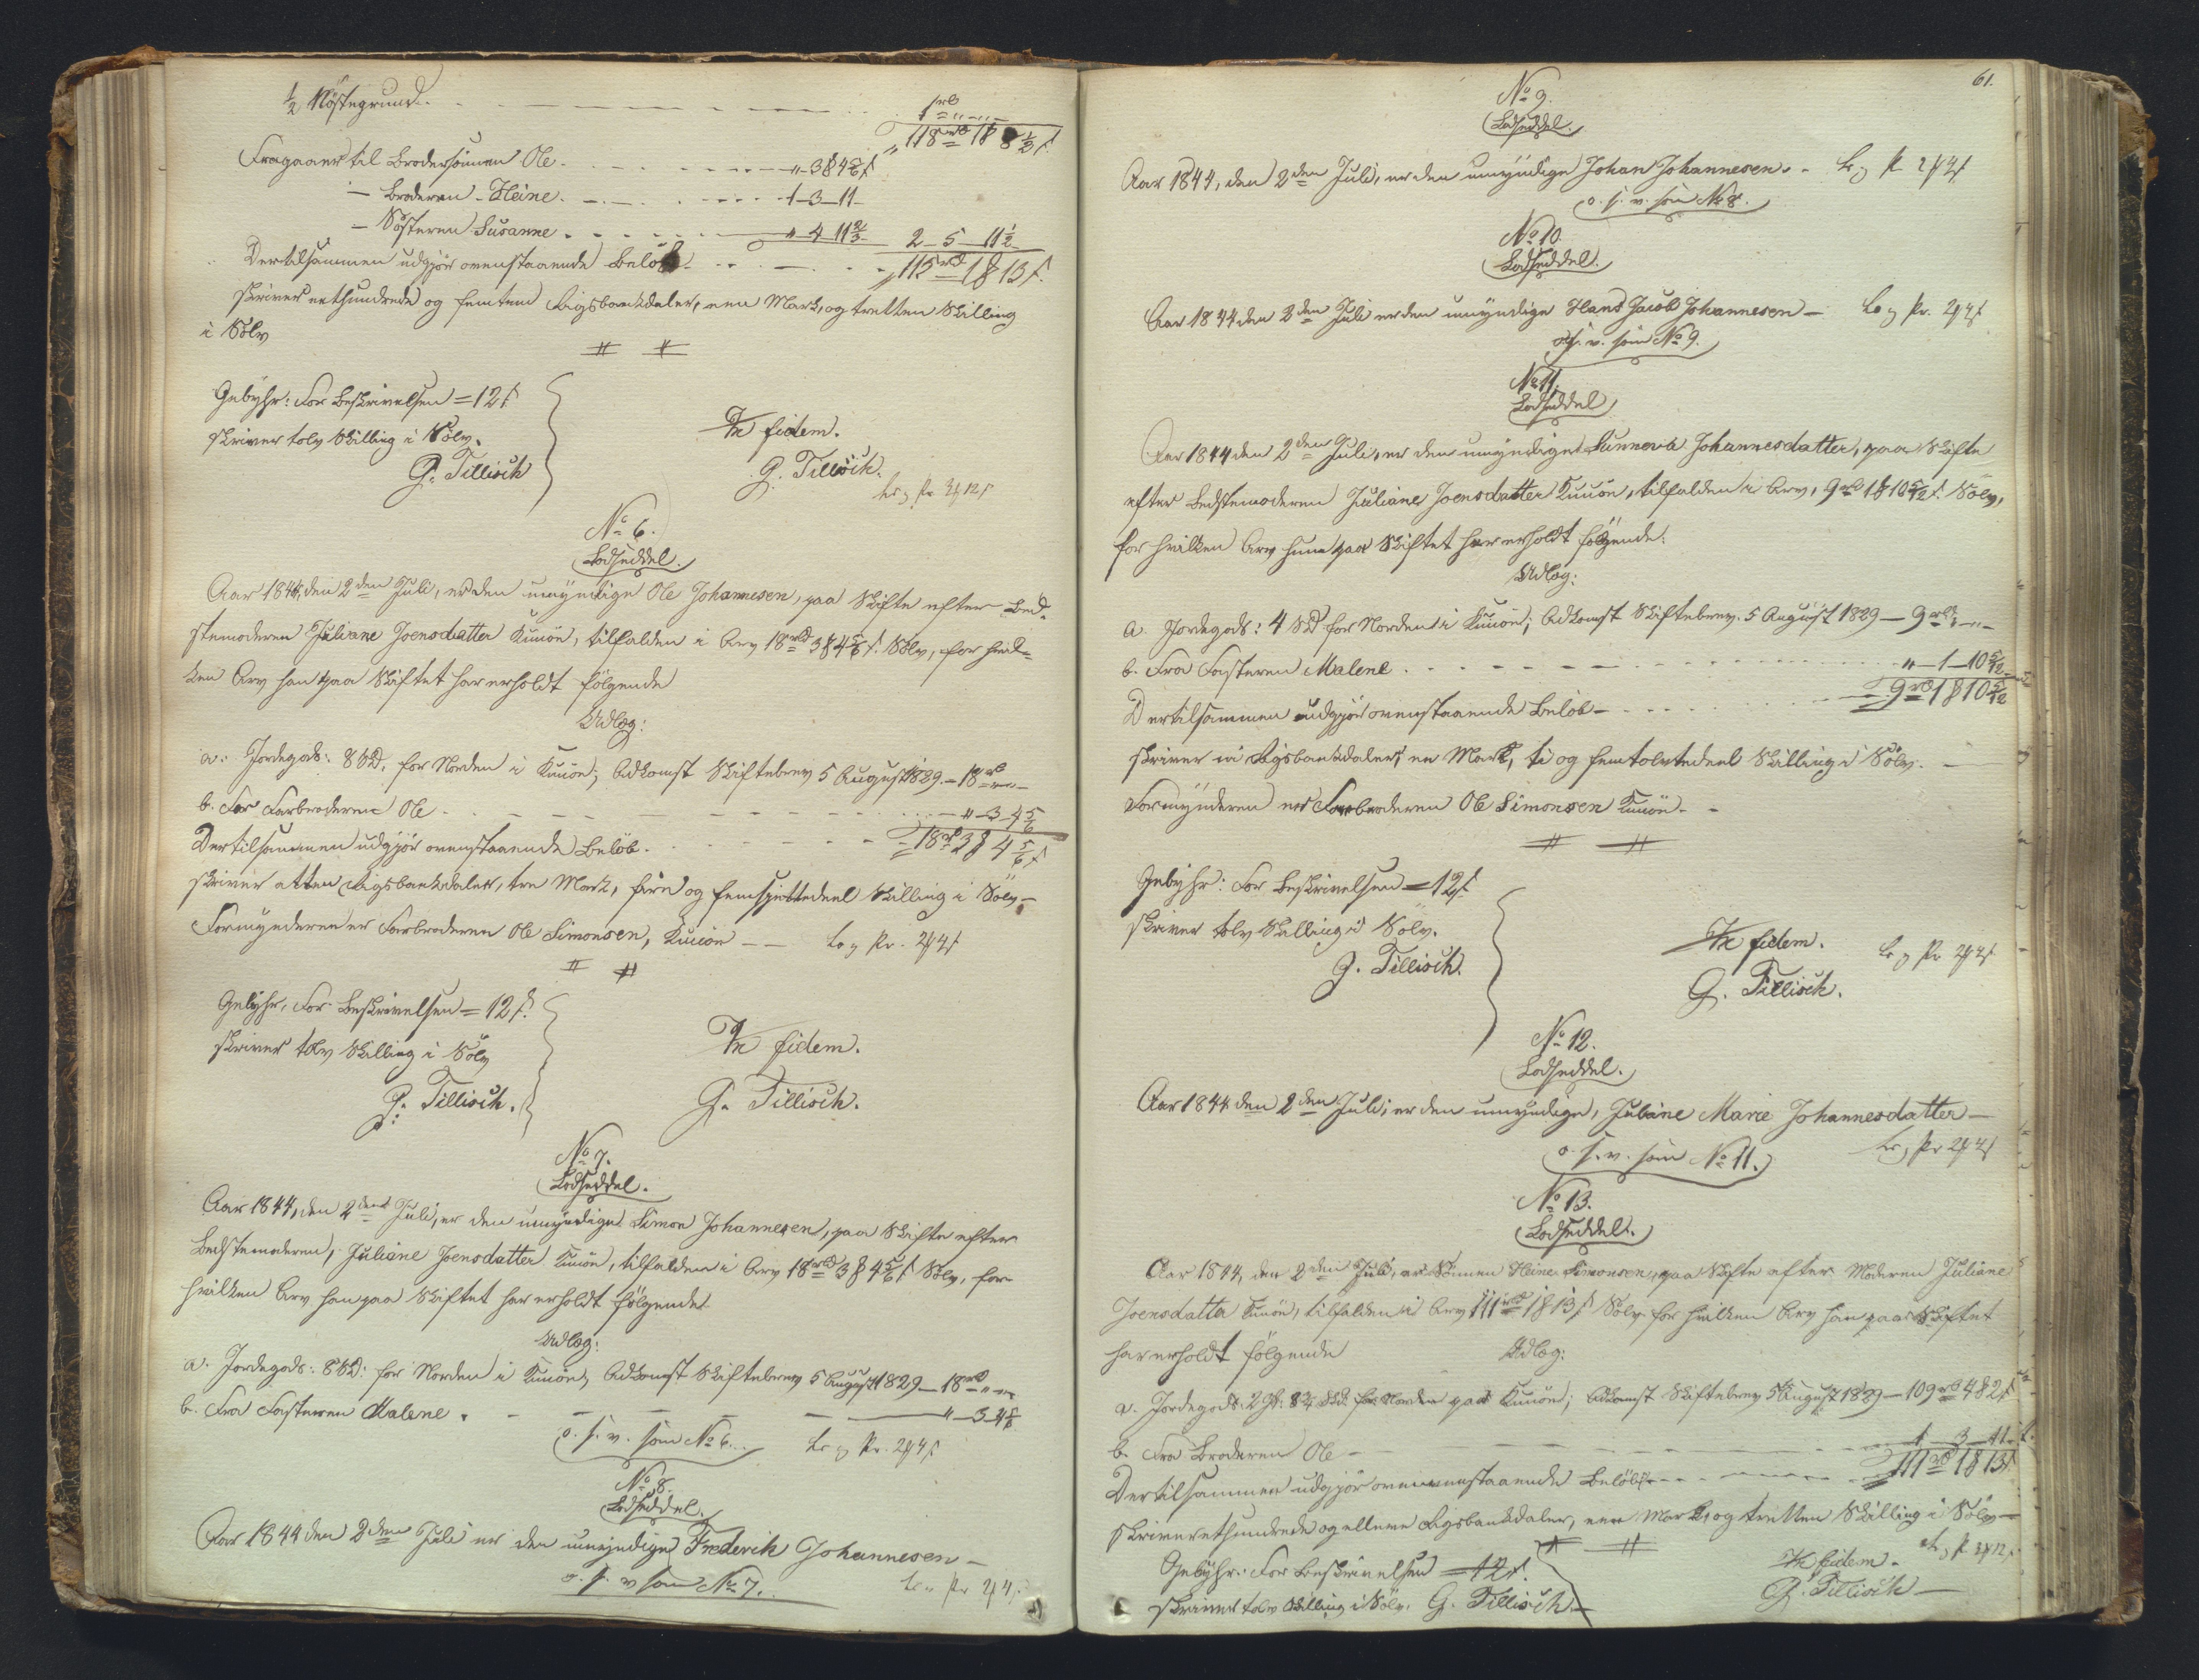 ½ Nøstegrund. 1 rbd „ „
118 rbd 1 ß 8½ s.
Fragaaer til Brodersønnen Ole. „ 3 ß 4⅚ s
— Broderen Heine. 1 – 3 – 11
— Søsteren Susanne. „ 4 11⅔ 2 – 5 – 11½
Dertilsammen udgjør ovenstaaende Beløb 115 rbd 1 ß 13 s.
skriver eethundrede og femten Rigsbankdaler, een Mark, og tretten Skilling
i Sølv
Gebyhr: For Beskrivelsen = 12 s
skriver tolv Skilling i Sølv.
G. Tillisch
In fidem.
G. Tillisch.
No 6.
Lodseddel.
Aar 1844, den 2den Juli, er den umyndige Ole Johannesen, paa Skifte efter Bed-
stemoderen Juliane Joensdatter Kunøn, tilfalden i Arv 18 rbd 3 ß 4⅚ s. Sølv, for hvil-
ken Arv han paa Skiftet har erholdt følgende
Udlæg:
a. Jordegods: 8 Skd. for Norden i Kunøn; Adkomst Skiftebrev 5 August 1829. – 18 rbd „ „
b. For Farbroderen Ole „ – 3 – 4⅚
Dertilsammen udgjør ovenstaaende Beløb. 18 rbd 3 ß 4⅚ s
skriver atten Rigsbankdaler, tre Mark, fire og femsjettedeel Skilling i Sølv –
Formynderen er Farbroderen Ole Simonsen, Kunøn – – 2 ß 4 s
Gebyhr, For Beskrivelsen = 12 s.
skriver tolv Skilling i Sølv
G. Tillisch.
In fidem.
G. Tillisch.
No 7.
Lodseddel.
Aar 1844, den 2den Juli, er den umyndige Simon Johannesen, paa Skifte efter
Bedstemoderen, Juliane Joensdatter Kunøn, tilfalden i Arv 18 rbd 3 ß 4⅚ s Sølv, for
hvilken Arv han paa Skiftet har erholdt følgende
Udlæg:
a. Jordegods: 8 Skd: for Norden i Kunøn, Adkomst Skiftebrev 5 August 1829 – 18 rbd „ „
b. Fra Fasteren Malene. „ – 3 – 4⅚
o. s. v. som No 6. 2 ß 4 s
No 8.
Lodseddel.
Aar 1844 den 2den Juli er den umyndige Frederik Johannesen –
o. s. v som No 7. 2 ß 4 s
61.
No 9.
Lodseddel.
Aar 1844, den 2den Juli, er den umyndige Johan Johannesen. – 2 ß 4 s
o. s. v. som No 8.
No 10.
Lodseddel.
Aar 1844 den 2den Juli er den umyndige Hans Jacob Johannesen – 2 ß 4 s
o. s. v. som No 9.
No 11.
Lodseddel
Aar 1844 den 2den Juli, er den umyndige Sunneva Johannesdatter, paa Skifte
efter Bedstemoderen Juliane Joensdatter Kunøn, tilfalden i Arv, 9 rbd 1 ß 10 5/12 s. Sølv,
for hvilken Arv hun paa Skiftet har erholdt følgende:
Udlæg:
a. Jordegods: 4 Skd for Norden i Kunøn; Adkomst Skiftebrev 5 August 1829 – 9 rbd „ „
b. Fra Fasteren Malene. „ – 1 – 10 5/12
Dertilsammen udgjør ovenstaaende Beløb – 9 rbd 1 ß 10 5/12
skriver ni Rigsbankdaler, en Mark, ti og femtolvtedeel Skilling i Sølv. –
Formynderen er Farbroderen Ole Simonsen Kunøn. –
Gebyhr: For Beskrivelsen = 12 s.
skriver tolv Skilling i Sølv.
G. Tillisch.
In fidem. 2 ß 4 s
G. Tillisch.
No 12.
Lodseddel.
Aar 1844 den 2den Juli, er den umyndige, Juliane Marie Johannesdatter –
o. s. v. som No 11. 2 ß 4 s
No 13.
Lodseddel.
Aar 1844, den 2den Juli, er Sønnen Heine Simonsen, paa Skifte efter Moderen Juliane
Joensdatter Kunøn, tilfalden i Arv 111 rbd 1 ß 13 s Sølv for hvilken Arv han paa Skiftet
har erholdt følgende Udlæg:
a. Jordegods: 2 Gl: 8¾ Skd. for Norden paa Kunøn; Adkomst Skiftebrev 5 August 1829 – 109 rbd 4 ß 2 s
b. Fra Broderen Ole – 1 – 3 – 11 –
Dertilsammen udgjør ovenstaaende Beløb 111 rbd 1 ß 13 s
skriver ethundrede og elleve Rigsbankdaler, een Mark, og tretten Skilling i Sølv –
Gebyhr: For Beskrivelsen = 12 s.
skriver tolv Skilling i Sølv. G. Tillisch –
In fidem.
G. Tillisch –